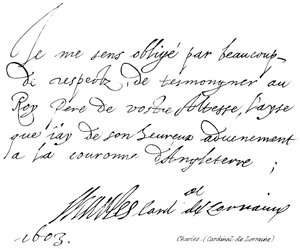 Je me sens obligé par beaucoup
de respectz, de tesmongner au
Roy Pere de vostre Altesse, l'ayse
que j'ay de son heureux aduenement
a la couronne d'Angleterre ;
Charles Card al de Lorraine
1603.
Charles (Cardinal de Lorraine)